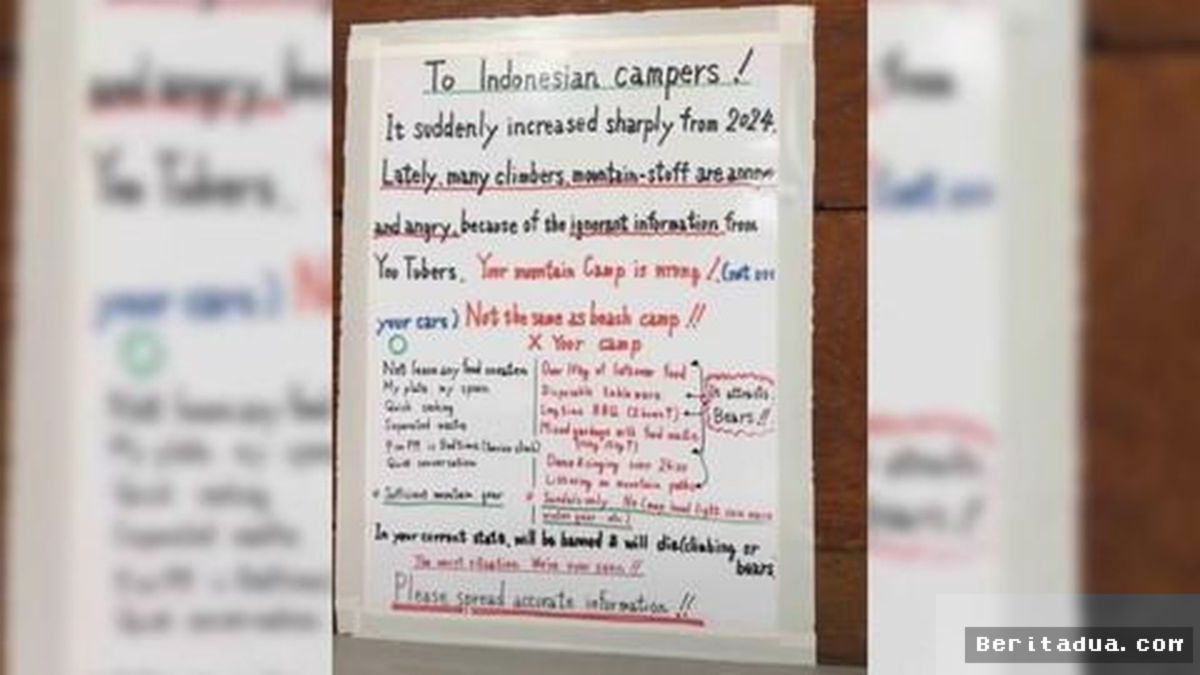 To Indonesian campers!
It suddenly increased sharply from 2024.
Lately, many climbers, mountain-staff are
and angry, because of the ignorant information from
You Tubers. Your mountain Camp is wrong! (Get
your cars) Not the same as beach camp!!
X Your camp
Not leave any food
My plate my spoon
Over of leftover food
Disposable tableware
It attracts
Bears!!
Quick cooking
Long time BBQ
Separated waste
Mixed garbage with food waste
7:00 PM is Bedtime
Quiet conversation
Dance & singing over
Littering on mountain paths
Sufficient mountain gear
Sandals only. No (map head light rain wear
winter gear etc)
In your current state, will be banned & will die (climbing or
bears
The worst situation We've ever seen!!
Please spread accurate information!!
Beritadua.com